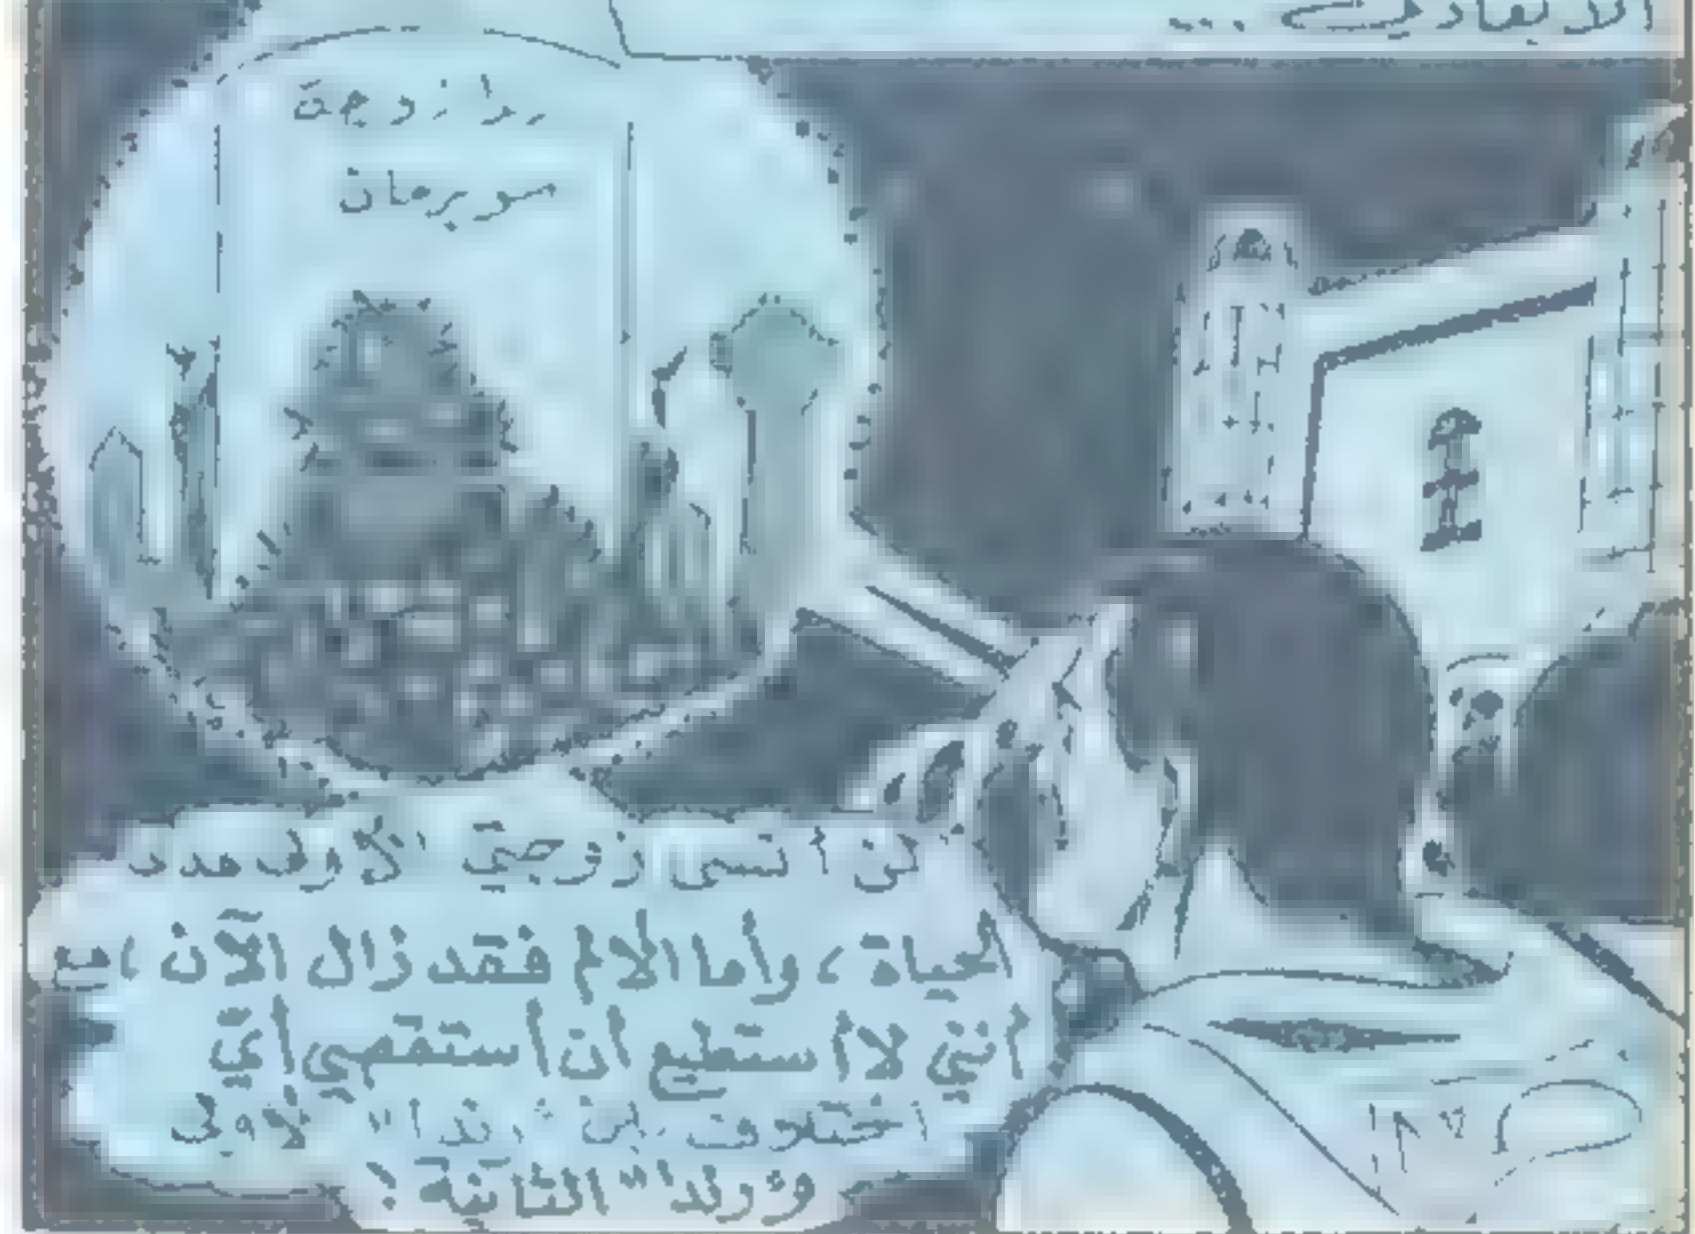 الابعادي ...
رندا زوجة
سوبرمان
لن أنسى زوجتي الأولى مدى
الحياة ، وأما الألم فقد زال الآن ، مع
أنني لا أستطيع أن أستقصي أيّ
اختلاف بين "رندا" الأولى
و"رندا" الثانية !